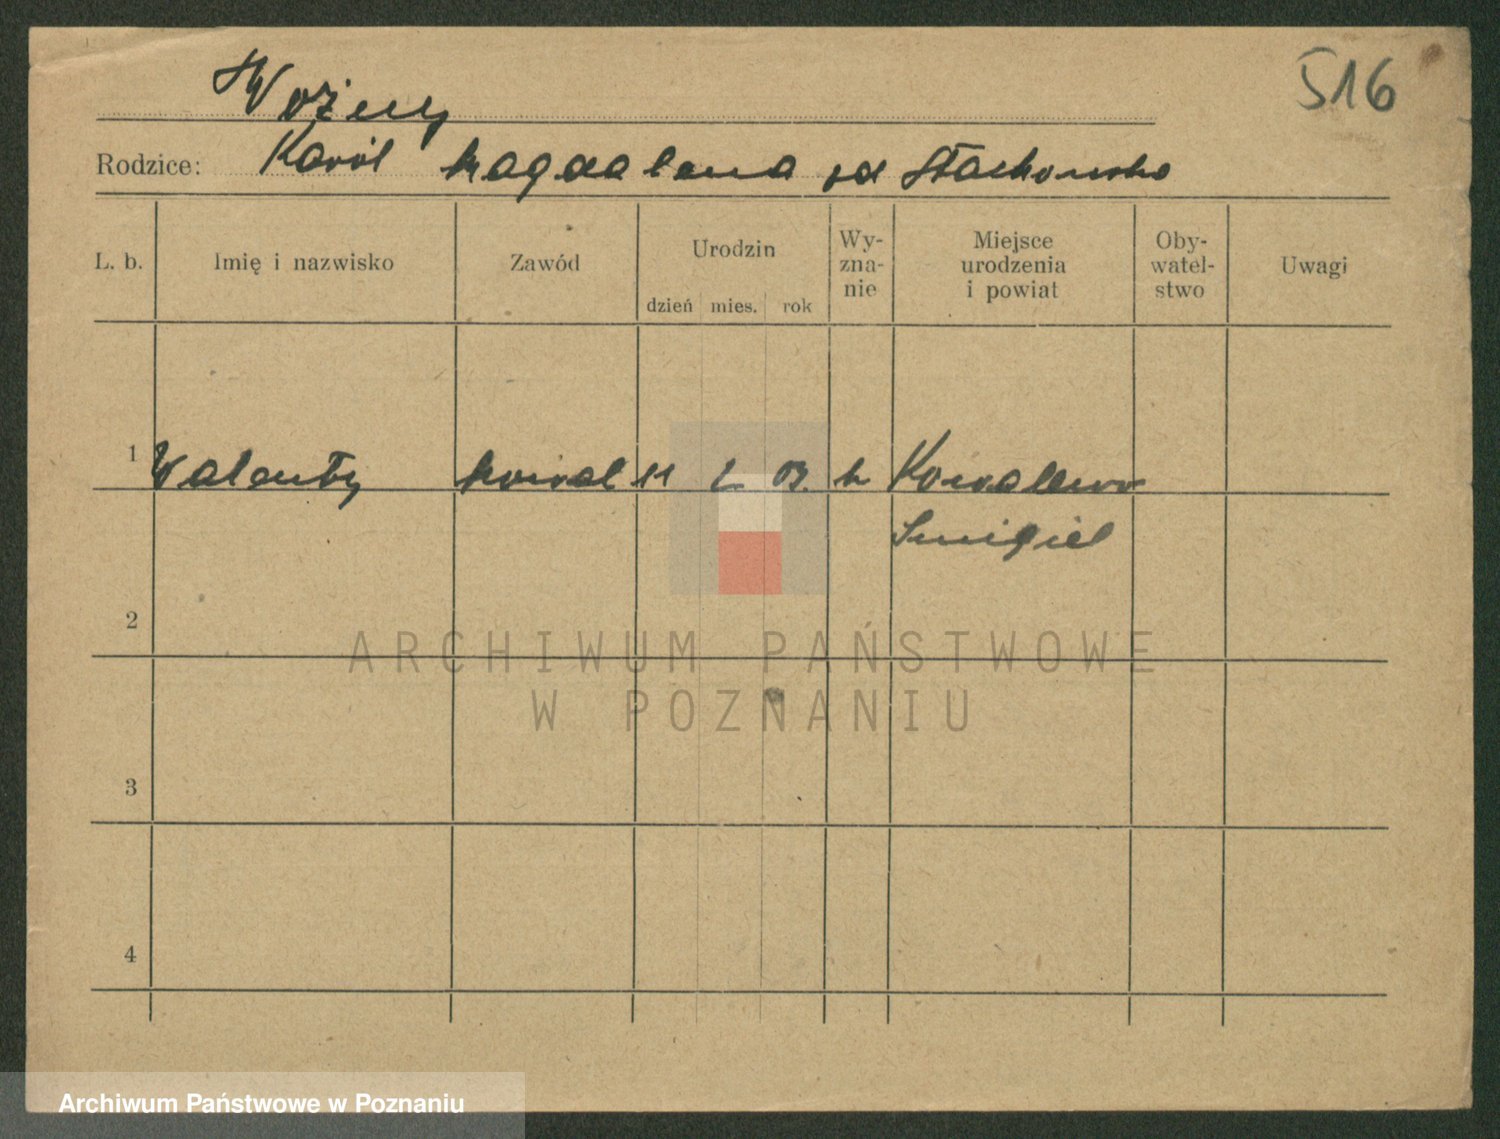 516
Woźny
Rodzice: Karól Magdalena od Stachowska
L. b. Imię i nazwisko Zawód Urodzin Wy-zna-nie Miejsce urodzenia i powiat Oby-watel-stwo Uwagi
dzień mies. rok
1 Walenty kowal 11 2 03. k Kowalewo
Smigiel
2
ARCHIWUM PAŃSTWOWE
W POZNANIU
3
4
Archiwum Państwowe w Poznaniu